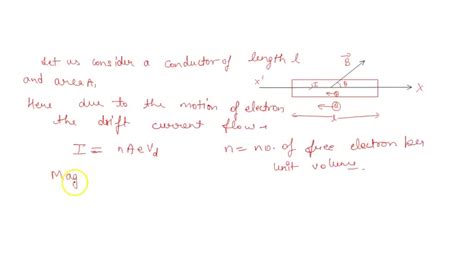 Let us consider a conductor of length l
and area A,
Here due to the motion of electron
the drift current flow →
I = nAeVd
n = no. of free electron per
unit volume.
Mag
B
X'
I
θ
X
l